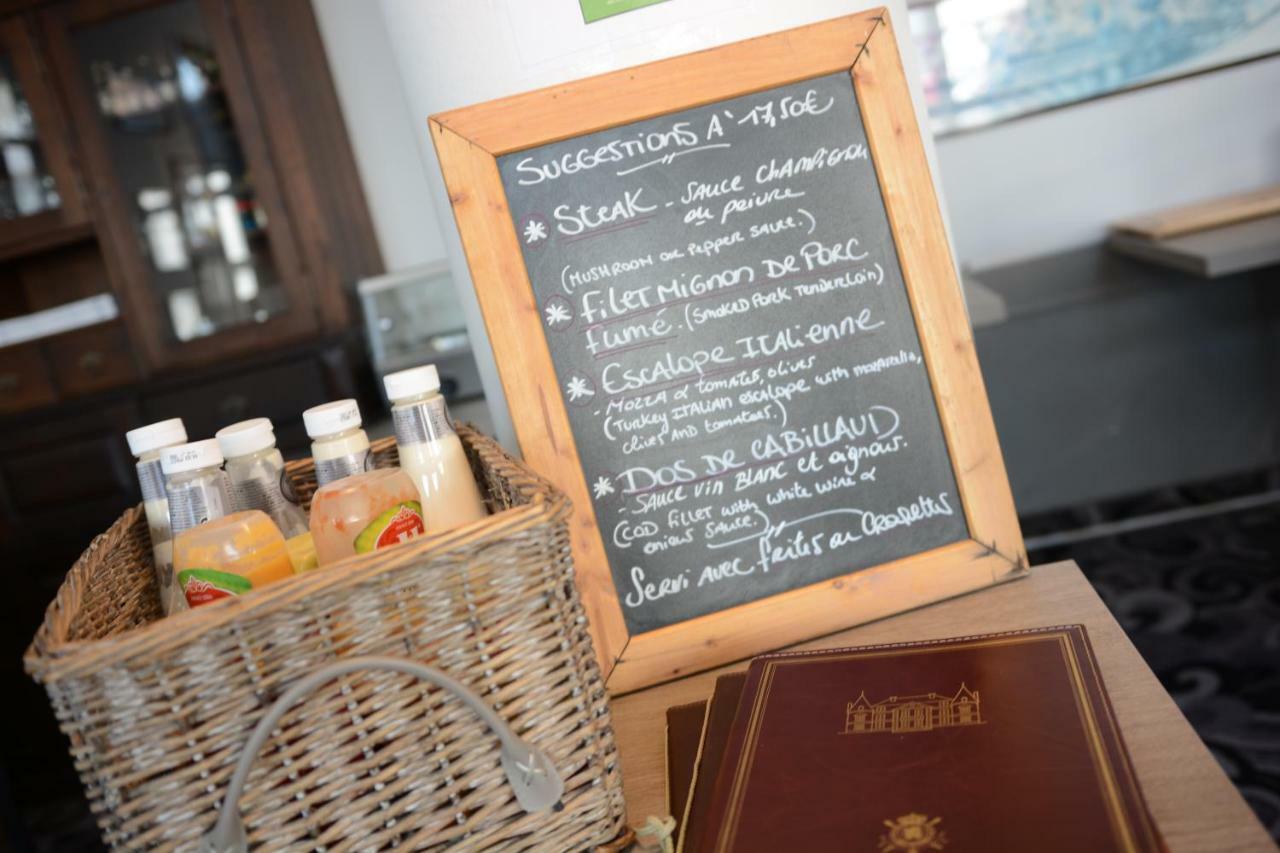 SUGGESTIONS A' 17,50€
* Steak - SAUCE CHAMPIGNON
ou poivre
(MUSHROOM OR PEPPER SAUCE.)
* Filet Mignon De Porc
fumé. (Smoked Pork Tenderloin)
* Escalope ITALienne
- Mozza & tomates, olives
(Turkey ITALIAN escalope with mozzarella,
olives AND tomatoes.)
* Dos De CABILLAUD
- SAUCE VIN BLANC et oignons.
(COD fillet with white wine &
onions SAUCE.)
Servi avec frites ou Croquettes